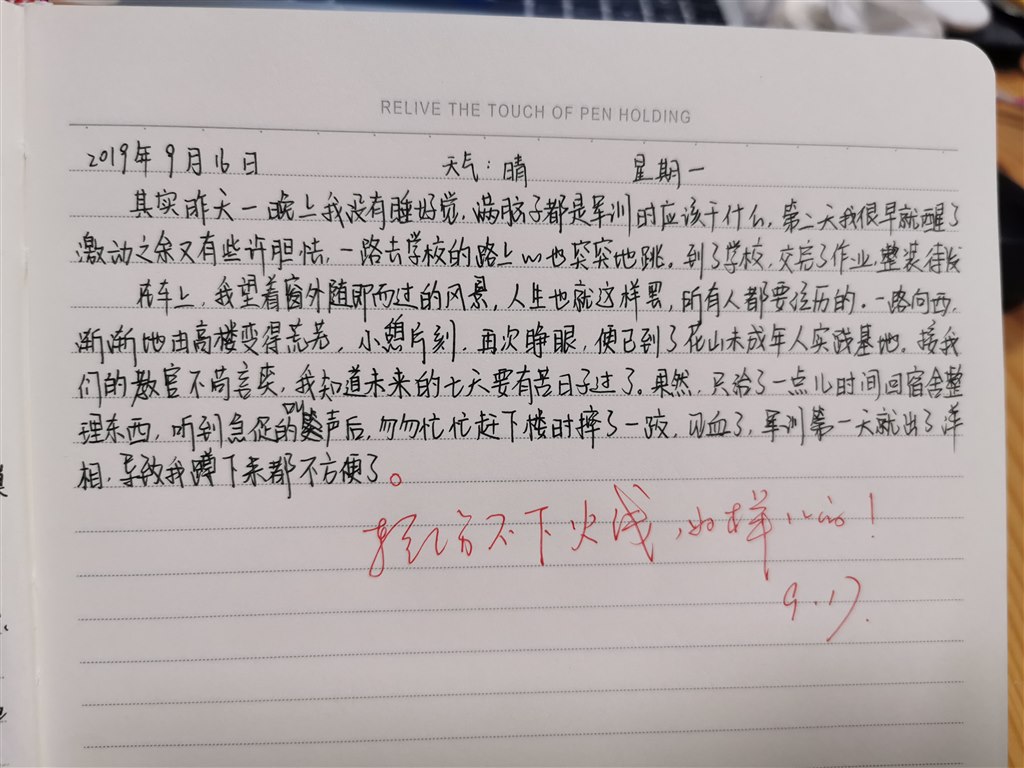 RELIVE THE TOUCH OF PEN HOLDING
2019年9月16日 天气：晴 星期一
其实昨天一晚上我没有睡好觉，满脑子都是军训时应该干什么，第二天我很早就醒了
激动之余又有些许胆怯，一路去学校的路上心也突突地跳。到了学校，交完了作业，整装待发
在车上，我望着窗外随即而过的风景，人生也就这样罢，所有人都要经历的。一路向西，
渐渐地由高楼变得荒芜，小憩片刻，再次睁眼，便已到了花山未成年人实践基地。接我
们的教官不苟言笑，我知道未来的七天要有苦日子过了。果然，只给了一点儿时间回宿舍整
理东西，听到急促的叫声后，匆匆忙忙赶下楼时摔了一跤，见血了，军训第一天就出了洋
相，导致我蹲下来都不方便了。
轻伤不下火线，好样的！
9.17.